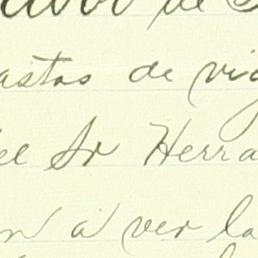 de
astos de vi
el Sr Herra
n a ver la